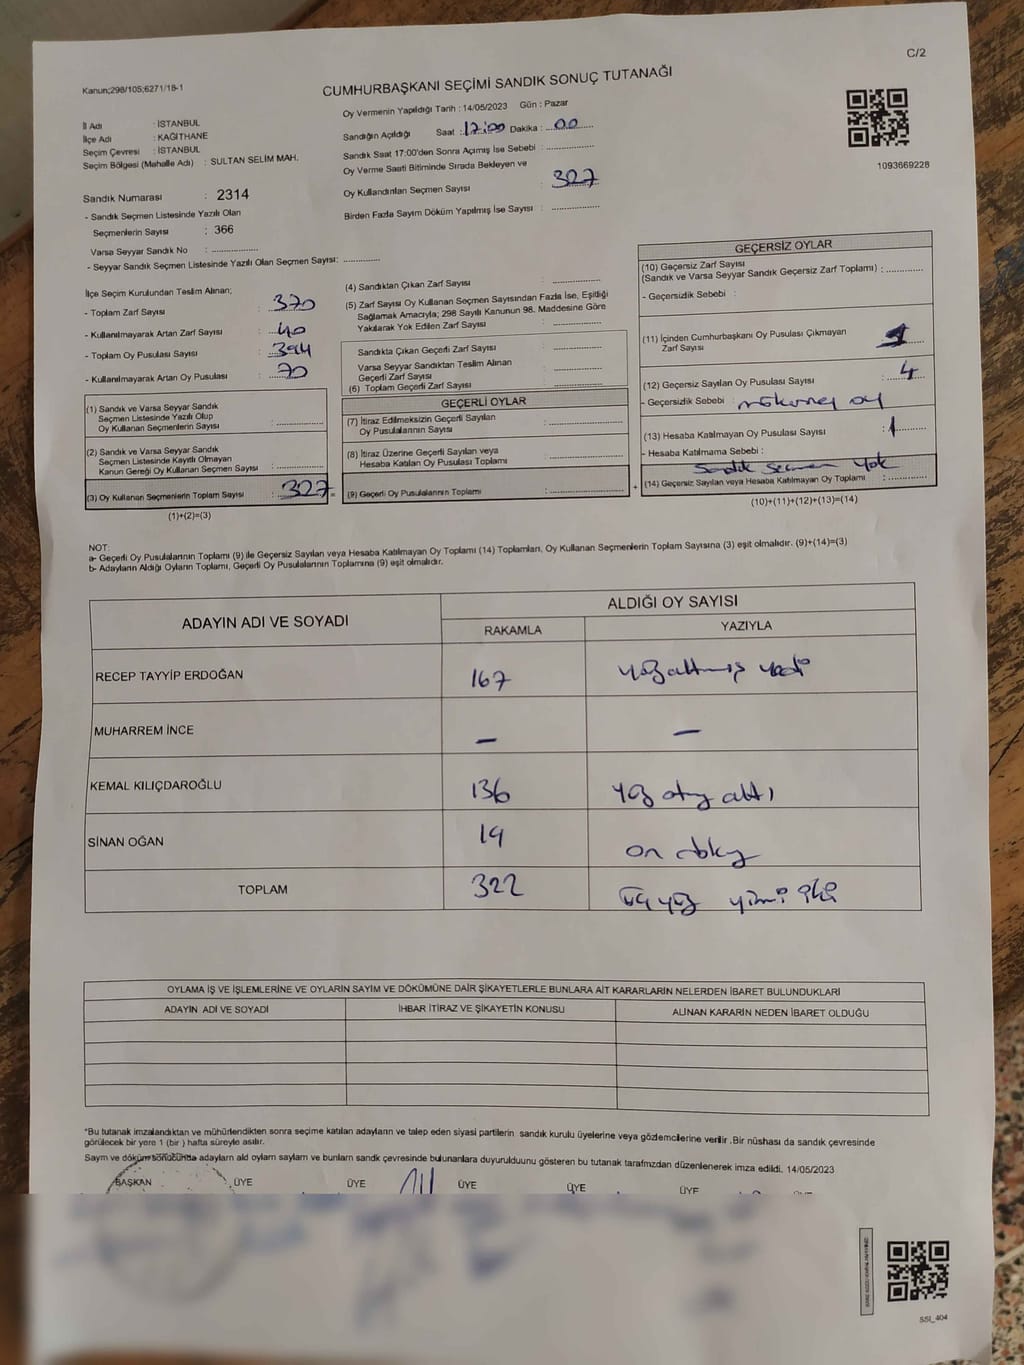 C/2
Kanun;298/105;6271/18-1
CUMHURBAŞKANI SEÇİMİ SANDIK SONUÇ TUTANAĞI
İl Adı : İSTANBUL
İlçe Adı : KAĞITHANE
Seçim Çevresi : İSTANBUL
Seçim Bölgesi (Mahalle Adı) : SULTAN SELİM MAH.
Oy Vermenin Yapıldığı Tarih : 14/05/2023 Gün : Pazar
Sandığın Açıldığı Saat : 17:00 Dakika : 00
Sandık Saat 17:00'den Sonra Açımış İse Sebebi :
Oy Verme Saati Bitiminde Sırada Bekleyen ve
Oy Kullandırılan Seçmen Sayısı : 327
Birden Fazla Sayım Döküm Yapılmış İse Sayısı :
1093669228
Sandık Numarası : 2314
- Sandık Seçmen Listesinde Yazılı Olan
Seçmenlerin Sayısı : 366
Varsa Seyyar Sandık No :
- Seyyar Sandık Seçmen Listesinde Yazılı Olan Seçmen Sayısı:
İlçe Seçim Kurulundan Teslim Alınan;
- Toplam Zarf Sayısı : 370
- Kullanılmayarak Artan Zarf Sayısı : 40
- Toplam Oy Pusulası Sayısı : 394
- Kullanılmayarak Artan Oy Pusulası : 70
(1) Sandık ve Varsa Seyyar Sandık
Seçmen Listesinde Yazılı Olup
Oy Kullanan Seçmenlerin Sayısı :
(2) Sandık ve Varsa Seyyar Sandık
Seçmen Listesinde Kayıtlı Olmayan
Kanun Gereği Oy Kullanan Seçmen Sayısı :
(3) Oy Kullanan Seçmenlerin Toplam Sayısı : 327
(1)+(2)=(3)
=
(4) Sandıktan Çıkan Zarf Sayısı :
(5) Zarf Sayısı Oy Kullanan Seçmen Sayısından Fazla İse, Eşitliği
Sağlamak Amacıyla; 298 Sayılı Kanunun 98. Maddesine Göre
Yakılarak Yok Edilen Zarf Sayısı :
Sandıkta Çıkan Geçerli Zarf Sayısı :
Varsa Seyyar Sandıktan Teslim Alınan
Geçerli Zarf Sayısı :
(6) Toplam Geçerli Zarf Sayısı :
GEÇERLİ OYLAR
(7) İtiraz Edilmeksizin Geçerli Sayılan
Oy Pusulalarının Sayısı :
(8) İtiraz Üzerine Geçerli Sayılan veya
Hesaba Katılan Oy Pusulası Toplamı :
(9) Geçerli Oy Pusulalarının Toplamı :
+
GEÇERSİZ OYLAR
(10) Geçersiz Zarf Sayısı
(Sandık ve Varsa Seyyar Sandık Geçersiz Zarf Toplamı) :
- Geçersizlik Sebebi :
(11) İçinden Cumhurbaşkanı Oy Pusulası Çıkmayan
Zarf Sayısı :
(12) Geçersiz Sayılan Oy Pusulası Sayısı : 4
- Geçersizlik Sebebi : oy
(13) Hesaba Katılmayan Oy Pusulası Sayısı : 1
- Hesaba Katılmama Sebebi :
Sandık Seçmen Yok
(14) Geçersiz Sayılan veya Hesaba Katılmayan Oy Toplamı :
(10)+(11)+(12)+(13)=(14)
NOT:
a- Geçerli Oy Pusulalarının Toplamı (9) ile Geçersiz Sayılan veya Hesaba Katılmayan Oy Toplamı (14) Toplamları, Oy Kullanan Seçmenlerin Toplam Sayısına (3) eşit olmalıdır. (9)+(14)=(3)
b- Adayların Aldığı Oyların Toplamı, Geçerli Oy Pusulalarının Toplamına (9) eşit olmalıdır.
ADAYIN ADI VE SOYADI
ALDIĞI OY SAYISI
RAKAMLA YAZIYLA
RECEP TAYYİP ERDOĞAN 167 yüzaltmış yedi
MUHARREM İNCE – –
KEMAL KILIÇDAROĞLU 136 yüz otuz altı
SİNAN OĞAN 19 on dokuz
TOPLAM 322 üç yüz yirmi iki
OYLAMA İŞ VE İŞLEMLERİNE VE OYLARIN SAYIM VE DÖKÜMÜNE DAİR ŞİKAYETLERLE BUNLARA AİT KARARLARIN NELERDEN İBARET BULUNDUKLARI
ADAYIN ADI VE SOYADI İHBAR İTİRAZ VE ŞİKAYETİN KONUSU ALINAN KARARIN NEDEN İBARET OLDUĞU
*Bu tutanak imzalandıktan ve mühürlendikten sonra seçime katılan adayların ve talep eden siyasi partilerin sandık kurulu üyelerine veya gözlemcilerine verilir .Bir nüshası da sandık çevresinde
görülecek bir yere 1 (bir ) hafta süreyle asılır.
Sayım ve döküm sonucunda adayların aldı oyların sayıları ve bunların sandık çevresinde bulunanlara duyurulduunu gösteren bu tutanak tarafımızdan düzenlenerek imza edildi. 14/05/2023
BAŞKAN ÜYE ÜYE ÜYE ÜYE ÜYE ÜYE
SSI_404